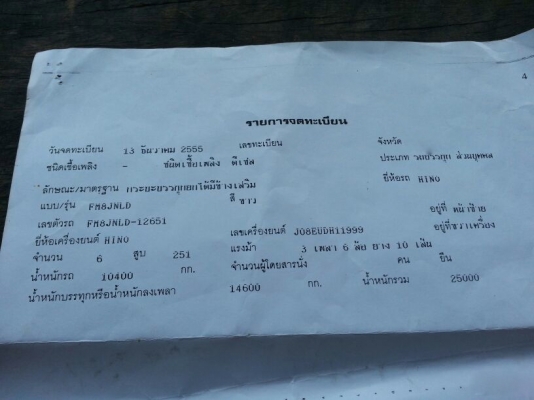 4
รายการจดทะเบียน
วันจดทะเบียน 13 ธันวาคม 2555 เลขทะเบียน จังหวัด
ชนิดเชื้อเพลิง - ชนิดเชื้อเพลิง ดีเซล ประเภท รถบรรทุก ส่วนบุคคล
ลักษณะ/มาตรฐาน กระบะบรรทุกยกได้มีข้างเสริม ยี่ห้อรถ HINO
แบบ/รุ่น FM8JNLD สี ขาว
เลขตัวรถ FM8JNLD-12651 อยู่ที่ หน้าซ้าย
ยี่ห้อเครื่องยนต์ HINO เลขเครื่องยนต์ J08EUDH11999 อยู่ที่ขวาเครื่อง
จำนวน 6 สูบ 251 แรงม้า 3 เพลา 6 ล้อ ยาง 10 เส้น
น้ำหนักรถ 10400 กก. จำนวนผู้โดยสารนั่ง คน ยืน
น้ำหนักบรรทุกหรือน้ำหนักลงเพลา 14600 กก. น้ำหนักรวม 25000